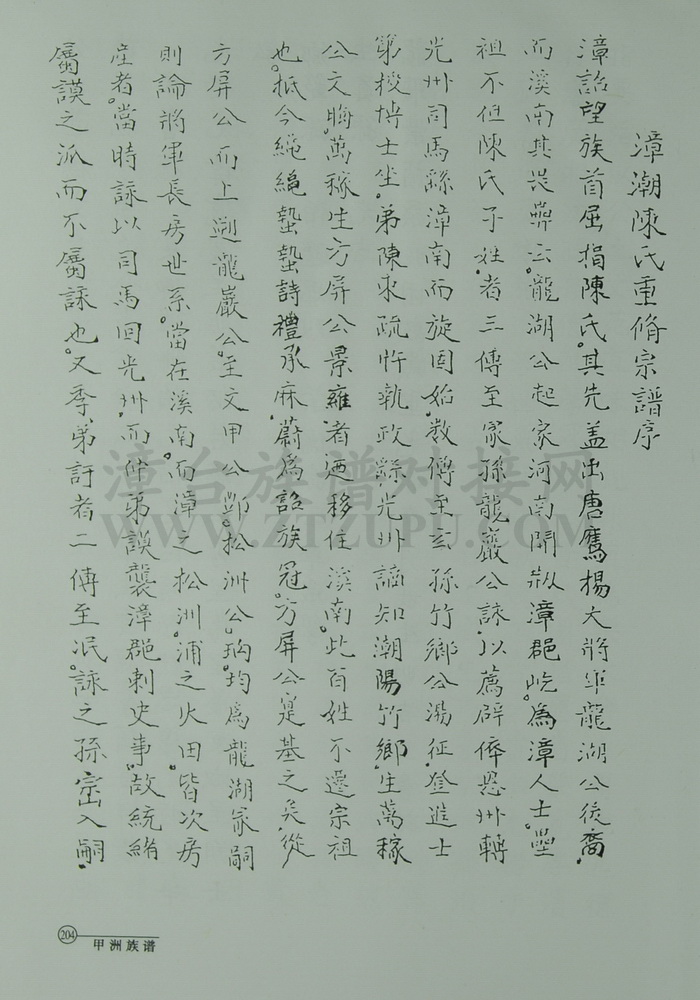 漳潮陳氏重脩宗譜序
漳詔望族首屈損陳氏。其先盖出唐鷹楊大將軍龍湖公後裔.
而溪南其㞷也云。龍湖公起家河南開漳郡屹。為漳人士
祖不但陳氏子姓.者三傳至家孫龍巖公詠.以薦辟恩州轉
光州司馬繇漳南而旋固始.数傳至玄孫竹鄉公湯征.登進士
第授博士坐.弟陳夷疏忤執政繇光州謫知潮陽竹鄉.生萬稼
公文晦.萬稼生方屏公景雍者迺移住溪南。此百姓不遷宗祖
也。抵今繩繩蟄蟄詩禮承麻.蔚為詔族冠。方屏公寔基之矣.從
方屏公而上遡龍巖公。至文甲公酆。松洲公珦。均為龍湖家嗣
則論將軍長房世系。當在溪南。而漳之松洲。浦之火田。皆次房
產者。當時詠以司馬回光州.而仲弟謨襲漳郡刺史事。故統緒
屬謨之派而不屬詠也。又季.弟訏者二傳至泯。詠之孫入嗣.
204
甲洲族谱
漳台族谱对接网
WWW.ZTZUPU.COM